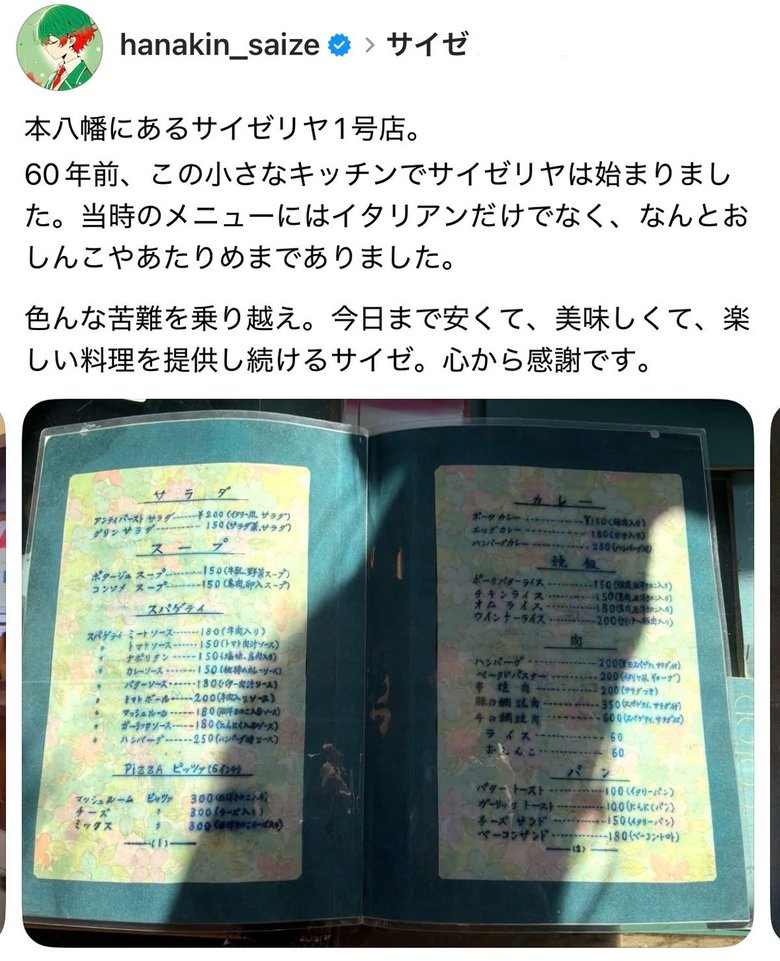 hanakin_saize > サイゼ
本八幡にあるサイゼリヤ1号店。
60年前、この小さなキッチンでサイゼリヤは始まりまし
た。当時のメニューにはイタリアンだけでなく、なんとお
しんこやあたりめまでありました。
色んな苦難を乗り越え。今日まで安くて、美味しくて、楽
しい料理を提供し続けるサイゼ。心から感謝です。
サラダ
アンティパースト サラダ ¥200(イタリー風、サラダ)
グリン サラダ 150(サラダ菜、サラダ)
スープ
ポタージュ スープ 150(牛乳、野菜スープ)
コンソメ スープ 150(鳥肉、卵入スープ)
スパゲティ
スパゲティ ミートソース 180(牛肉入り)
〃 トマトソース 150(トマト肉汁ソース)
〃 ナポリタン 150
〃 カレーソース 150
〃 バターソース 180
〃 ミートボール 200(牛肉入りソース)
〃 マッシュルーム 180
〃 ガーリックソース 180
〃 ハンバーグ 250
PiZZA ピッツァ(6インチ)
マッシュルーム ピッツァ 300
チーズ 〃 300(チーズ入り)
ミックス 〃 300
(1)
カレー
ポークカレー ¥150(豚肉入り)
エッグカレー 180
ハンバーグカレー 250
焼飯
ポークバターライス 150
チキンライス 150
オムライス 180
ウインナーライス 200
肉
ハンバーグ 200
ベークドパスター 200
串焼肉 200(サラダつき)
豚の網焼肉 350(スパゲティ、サラダ付)
牛の網焼肉 600(スパゲティ、サラダ付)
ライス 60
おしんこ 60
パン
バタートースト 100(イタリーパン)
ガーリックトースト 100(にんにくパン)
チーズサンド 150(イタリーパン)
ベーコンサンド 180(ベーコントマト)
(2)